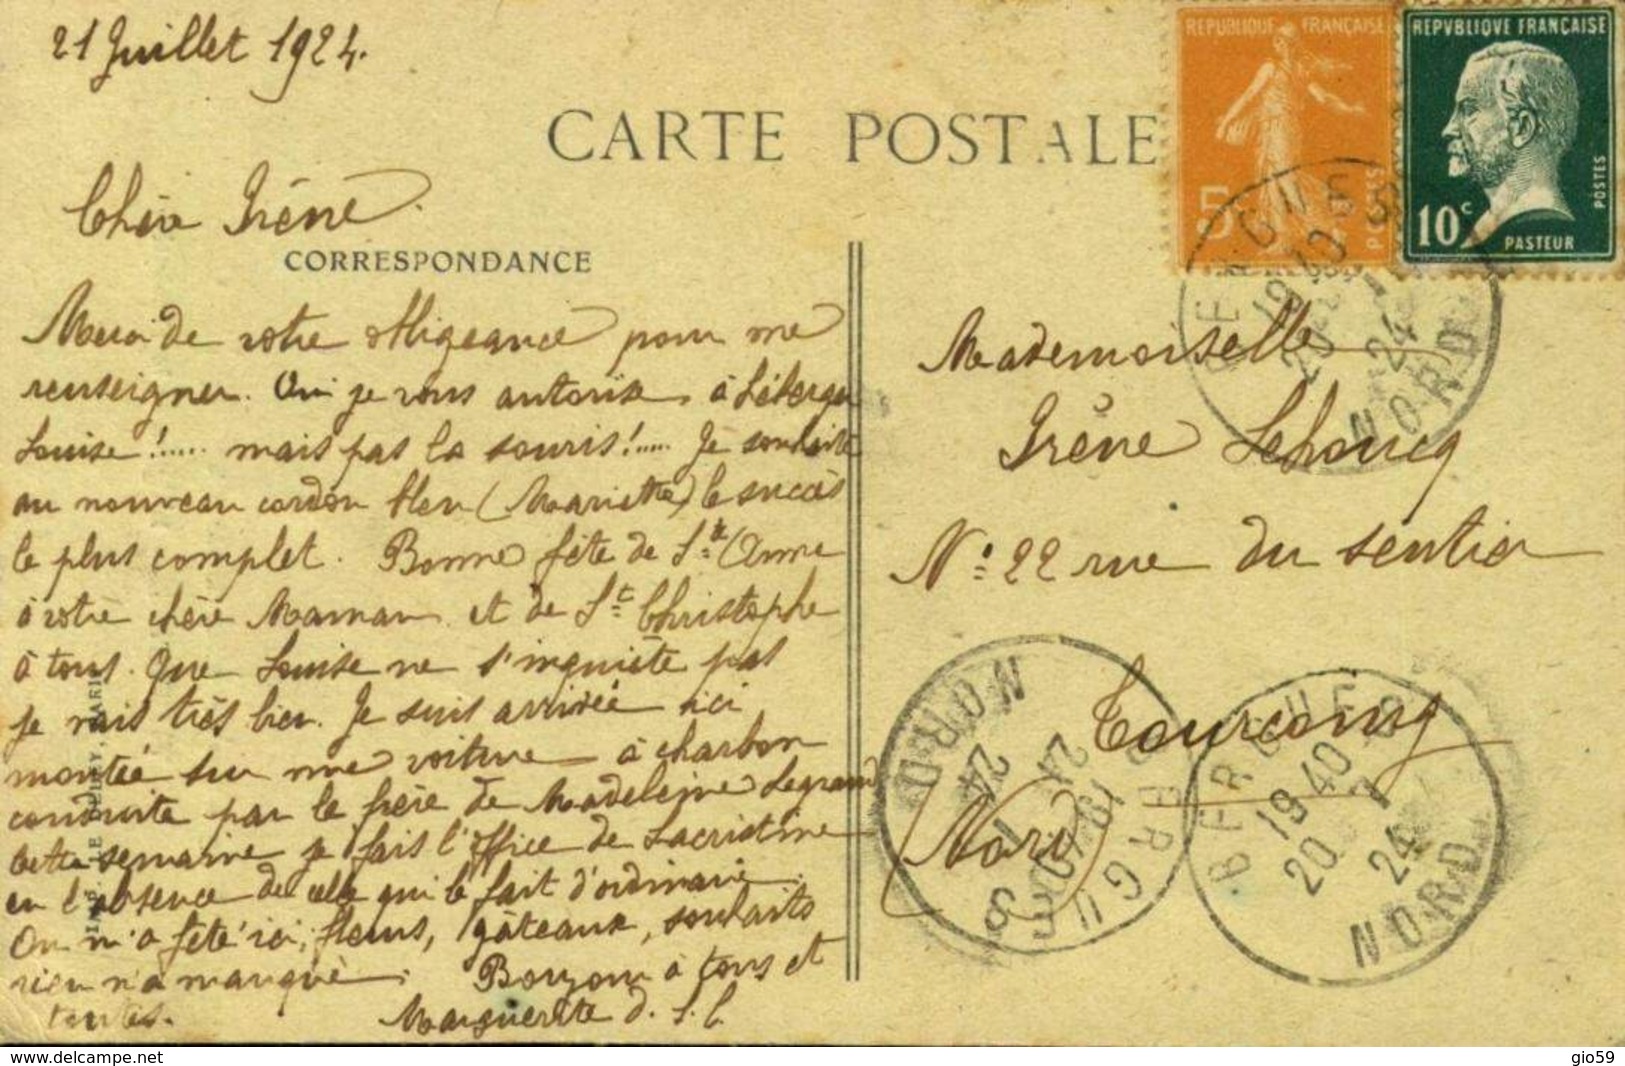 21 Juillet 1924.
CARTE POSTALE
REPUBLIQUE FRANÇAISE
5c
POSTES
REPVBLIQVE FRANÇAISE
10c
PASTEUR
POSTES
Chère Irène.
CORRESPONDANCE
Merci de votre obligeance pour me
renseigner. Oui je vous autorise à héberger
Louise !..... mais pas la souris !..... Je souhaite
au nouveau cordon bleu (Mariette) le succès
le plus complet. Bonne fête de Ste Anne
à votre chère Maman et de St Christophe
à tous. Que Louise ne s'inquiète pas
je vais très bien. Je suis arrivée ici
montée sur une voiture à charbon
conduite par le frère de Madeleine Legrand
Cette semaine je fais l'office de Sacristine
en l'absence de celle qui le fait d'ordinaire.
On m'a fêté ici, fleurs, gâteaux, souhaits
rien n'a manqué. Bonjour à tous et
toutes. Marguerite d. S. C.
Mademoiselle
Irène Lehoucq
No 22 rue du sentier
Tourcoing
(Nord)
BERGUES
19 40
20 - 7
24
NORD
BERGUES
19 40
20 7
24
NORD
BERGUES
19 40
20 7
24
NORD
delcampe.net
gio59